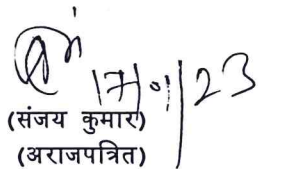 17/01/23
(संजय कुमार)
(अराजपत्रित)